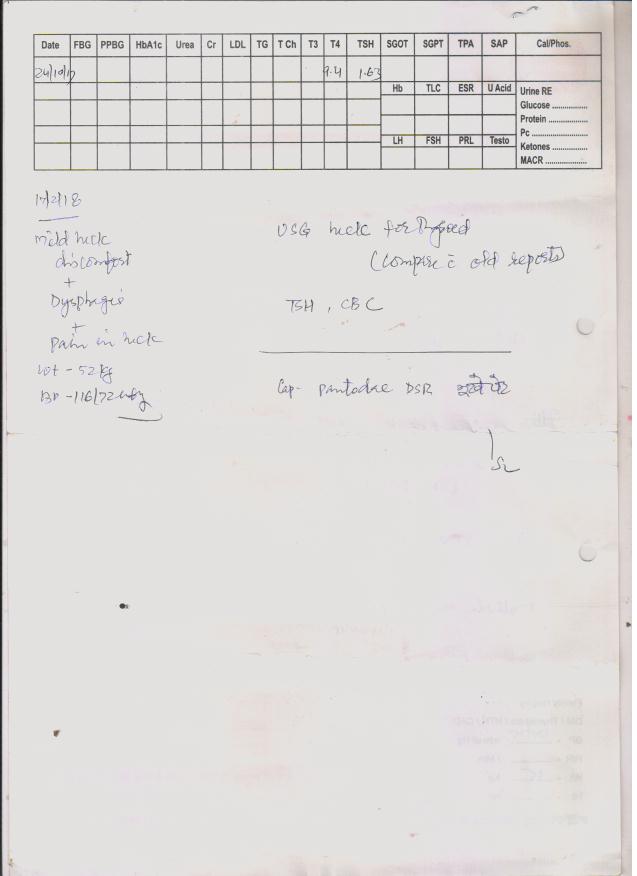 Date FBG PPBG HbA1c Urea Cr LDL TG T Ch T3 T4 TSH SGOT SGPT TPA SAP Cal/Phos.
24/10/17 9.4 1.63
Hb TLC ESR U Acid Urine RE
Glucose ..............
Protein ................
Pc ......................
LH FSH PRL Testo Ketones ..............
MACR ................
17/2/18
mild neck
discomfort
+
Dysphagia
+
Pain in neck
wt - 52 kg
BP - 116/72
USG neck for Thyroid
(Compare c̄ old reports)
TSH, CBC
Cap- Pantodac DSR